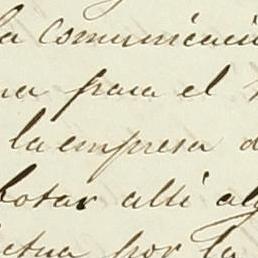 la comunicació
na para el
la empresa d
botar alli alg
ctua por la